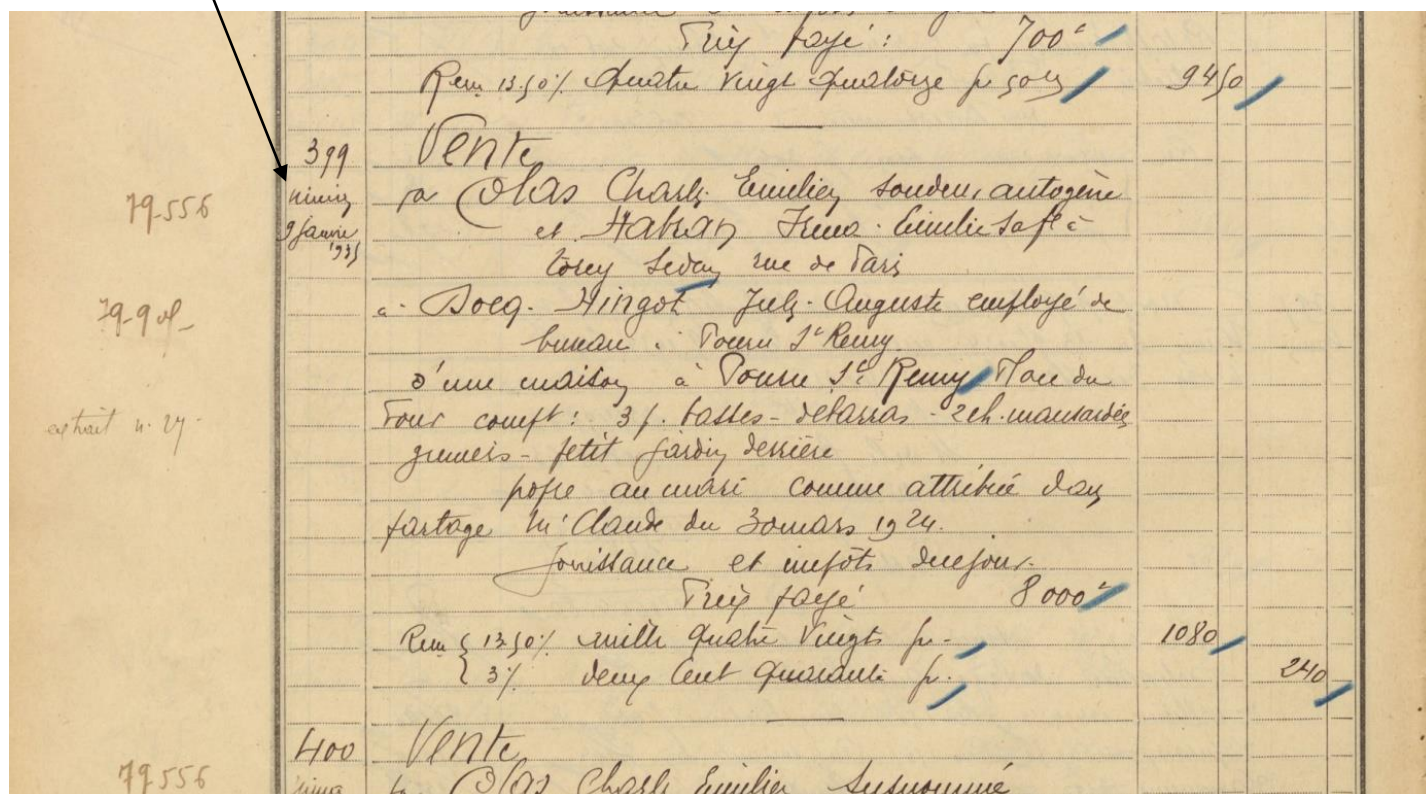 Prix payé : 700 f
Rem 13.50% Quatre Vingt Quatorze fr 50
94 50
399 Vente
79-556
minim
9 Janvier 1935
par Colas Charles Emilien soudeur autogène
et Habran Irma Emilie sa fe à
Torcy Sedan rue de Paris
79-9
à Docq-Hingot Jules Auguste employé de
bureau à Pouru St Remy
d'une maison à Pouru St Remy Place du
extrait n. 27-
Four compt : 3 p. basses - debarras - 2 ch. mansardées
greniers - petit jardin derrière
poste au mari comme attribué dans
partage Me Claude du 30 mars 1924.
Jouissance et impôts de ce jour.
Prix payé 8000 f
Rem { 13.50% mille quatre Vingts fr.- 1080
{ 3% deux Cent quarante fr. 240
400 Vente
79 556
par Colas Charles Emilien susnommé